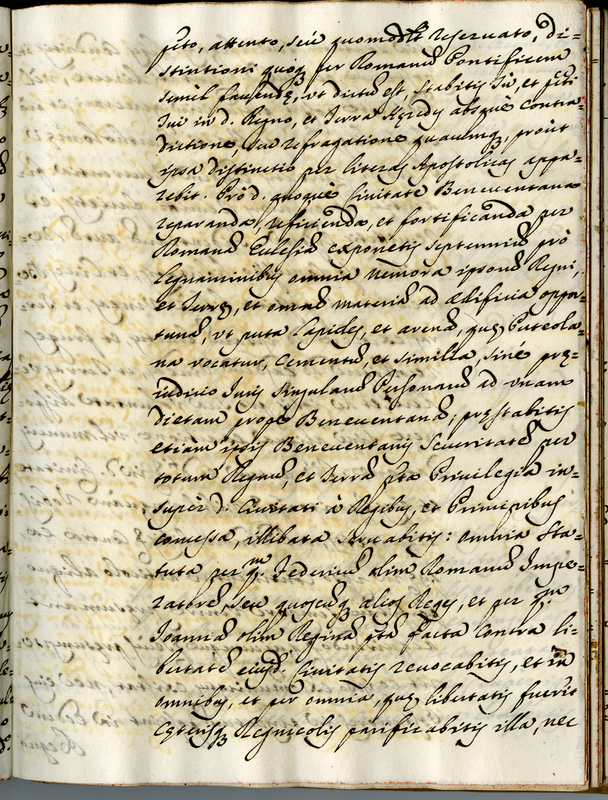 attento, seu quomodolt reservato, di=
stintioni quoq3 per Romanũ Pontificem
simil faciendę, ut dictũ est, stabitis
Tui in d. Regno, et Terra hęredes absque contra=
dictione, seu refragatione quacumq3, prout
ipsa distinctio per literas Apostolicas appa=
rebit. Pro d. quoque Civitate Beneventana
reparanda, reficienda, et fortificanda per
Romanã Eclesiã expensis septennium pro
legnaminibus omnia nemora ipsorũ Regni,
et Terrę, et omnẽ materiã ad ędificia oppor=
tunã, ut puta lapides, et arenã, quę Puteola=
na vocatur, Cementũ, et similia, sine prę=
iudicio Iuris singularũ Personarũ ad unam
dietam prope Beneventanã; pręstabitis
etiam ipsis Beneventanis securitatẽ per
totum Regnũ, et Terrã Privilegia in=
super d. Civitati à Regibus, et Principibus
concessa, illibata servabitis: omnia Sta=
tuta per q. Federicũ olim Romanũ Impe=
ratorẽ, seu quoscunq3 alios Reges, et per
Ioannã olim Reginã facta contra li=
bertatẽ eiusd. Civitatis revocabitis, et in
omnibus, et per omnia, quę libertatis fuerit
cęterisq3 Regnicolis parificabitis illa, nec